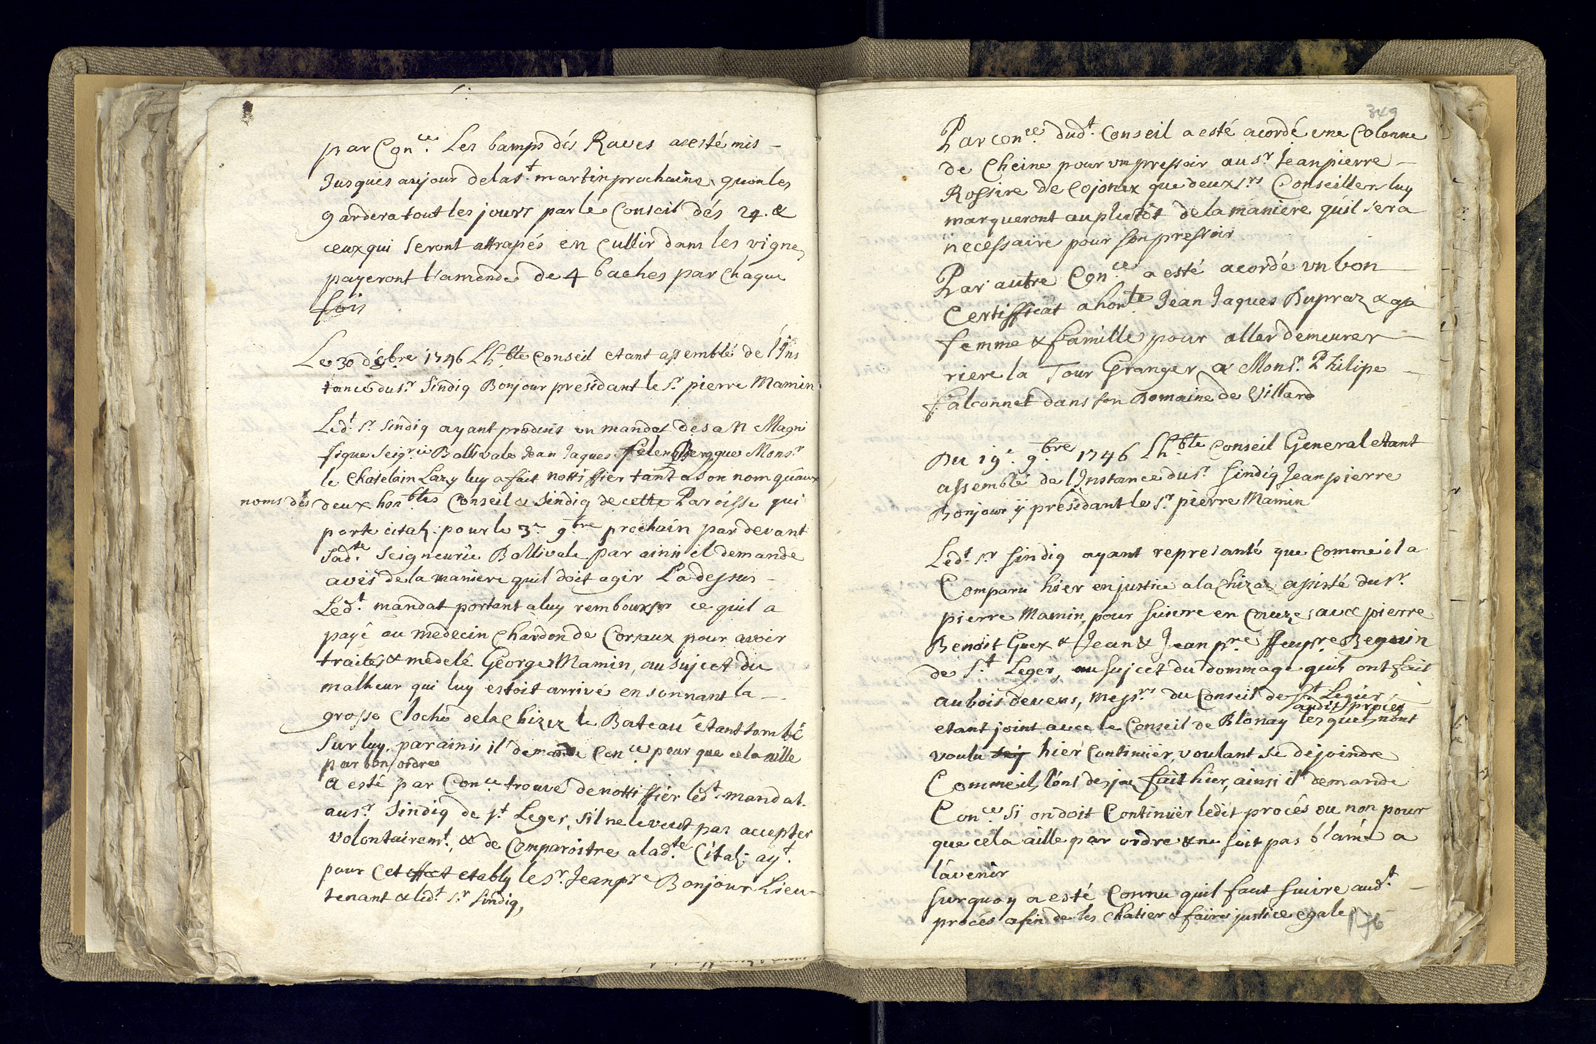 par Con.ce Les bamps dés Raves a esté mis
Jusques au jour de la st martin prochaine, quon les
gardera tout les jours par le Conseil dés 24. &
ceux qui seront attrapés en Cullir dans les vignes
payeront l'amande de 4 baches par Chaque
fois
Le 30 8bre 1746 Lh.ble Conseil etant assemblé de l'Ins
tance du sr Sindiq Bonjour presidant le sr pierre Mamin
Led.t sr Sindiq ayant produis un mandat de sa N Magni
fique Seigrie Ballivale Jean Jaques felenBergque Monsr
le Chatelain Lazy luy a fait nottiffier tant a son nom qu'aux
noms dés deux hon.bles Conseil & Sindiq de cette Paroisse qui
porte citat: pour le 3e 9bre prochain par devant
sad.te Seigneurie Ballivale, par ainsi il demande
avis de la maniere quil doit agir La dessus
Led.t mandat portant a luy rembourser ce quil a
payé au medecin Chardon de Corsaux pour avoir
traité & medelé George Mamin, au sujcet du
malheur qui luy estoit arrivé en sonnant la
grosse Cloche de la Chiza le Bateau êtant tombé
sur luy, par ainsi il demande Conce pour que cela aille
par bon ordre
A esté par Con.ce trouvé de nottiffier led.t mandat
au sr Sindiq de st Leger, sil ne le veut pas accepter
volontairemt, & de Comparoitre a lad.te Citat: ayt
pour Cet effect etably le sr Jean pre Bonjour Lieu-
tenant & led.t sr Sindiq,
349
Par conce dudt Conseil a esté acordé une Colonne
de Cheine pour un pressoir au sr Jean pierre
Rossire de Cojonex que deux srs Conseillers luy
marqueront au plutôt de la maniere qu'il sera
necessaire pour son pressoir
Par autre Conce a esté acordé un bon
Certifficat a honte Jean Jaques Dupraz & sa
femme & famille pour aller demeurer
riere la Tour Granger a Monsr Philipe
falconnet dans son Domaine de Villard
Du 19e 9bre 1746 Lhble Conseil General etant
assemblé de l'Instance du sr Sindiq Jean pierre
Bonjour ÿ presidant le sr pierre Mamin
Led.t sr Sindiq ayant represanté que Comme il a
Comparu hier en justice a la Chiza assisté du sr
pierre Mamin, pour suivre en Cause, avec pierre
Benoit Guex & Jean & Jean pre ffeu pre Beguin
de St Leger, au sujcet du dommage quils ont fait
au bois devens, Messrs du Conseil de St Legier
audit procés
etant joint avec le Conseil de Blonay lesquels nont
voulu hier Continuer, voulant se dejoindre
Comme ils lont desja fait hier, ainsi il demande
Conce si on doit Continuër ledit procés ou non pour
que cela aille par ordre & ne soit pas blamé a
lavenir
Surquoy a esté Connu quil faut suivre audt
procés afin de les chatier & faire justice egale
176